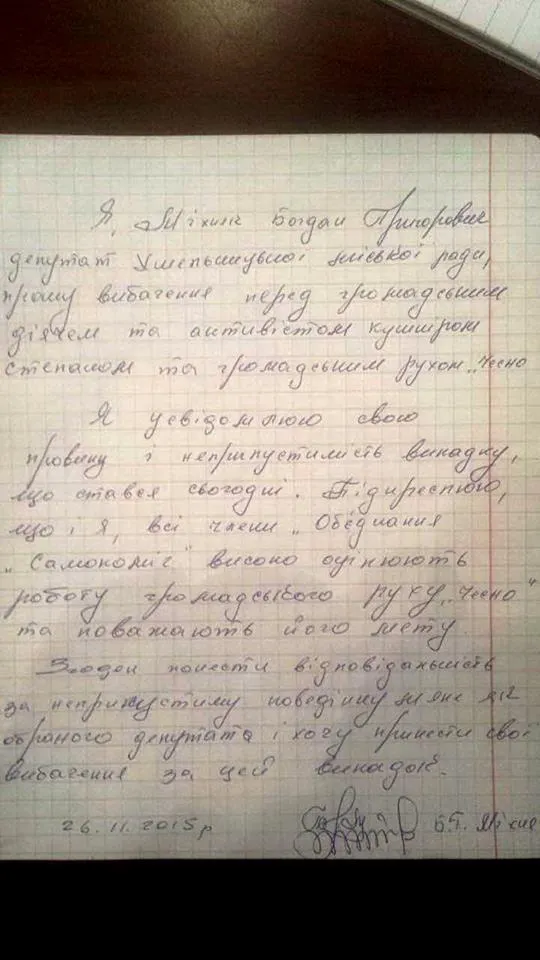 Я, Міхник Богдан Григорович
депутат Хмельницької міської ради,
прошу вибачення перед громадським
діячем та активістом Кушніром
Степаном та громадським рухом „Чесно
Я усвідомлюю свою
провину і неприпустимість випадку,
що стався сьогодні. Підкреслюю,
що і я, всі члени „Обєднання
„Самопоміч" високо оцінюють
роботу громадського руху „Чесно"
та поважають його мету.
Згоден понести відповідальність
за неприпустиму поведінку мене як
обраного депутата і хочу принести свої
вибачення за цей випадок.
26.11.2015р Б.Г. Міхник